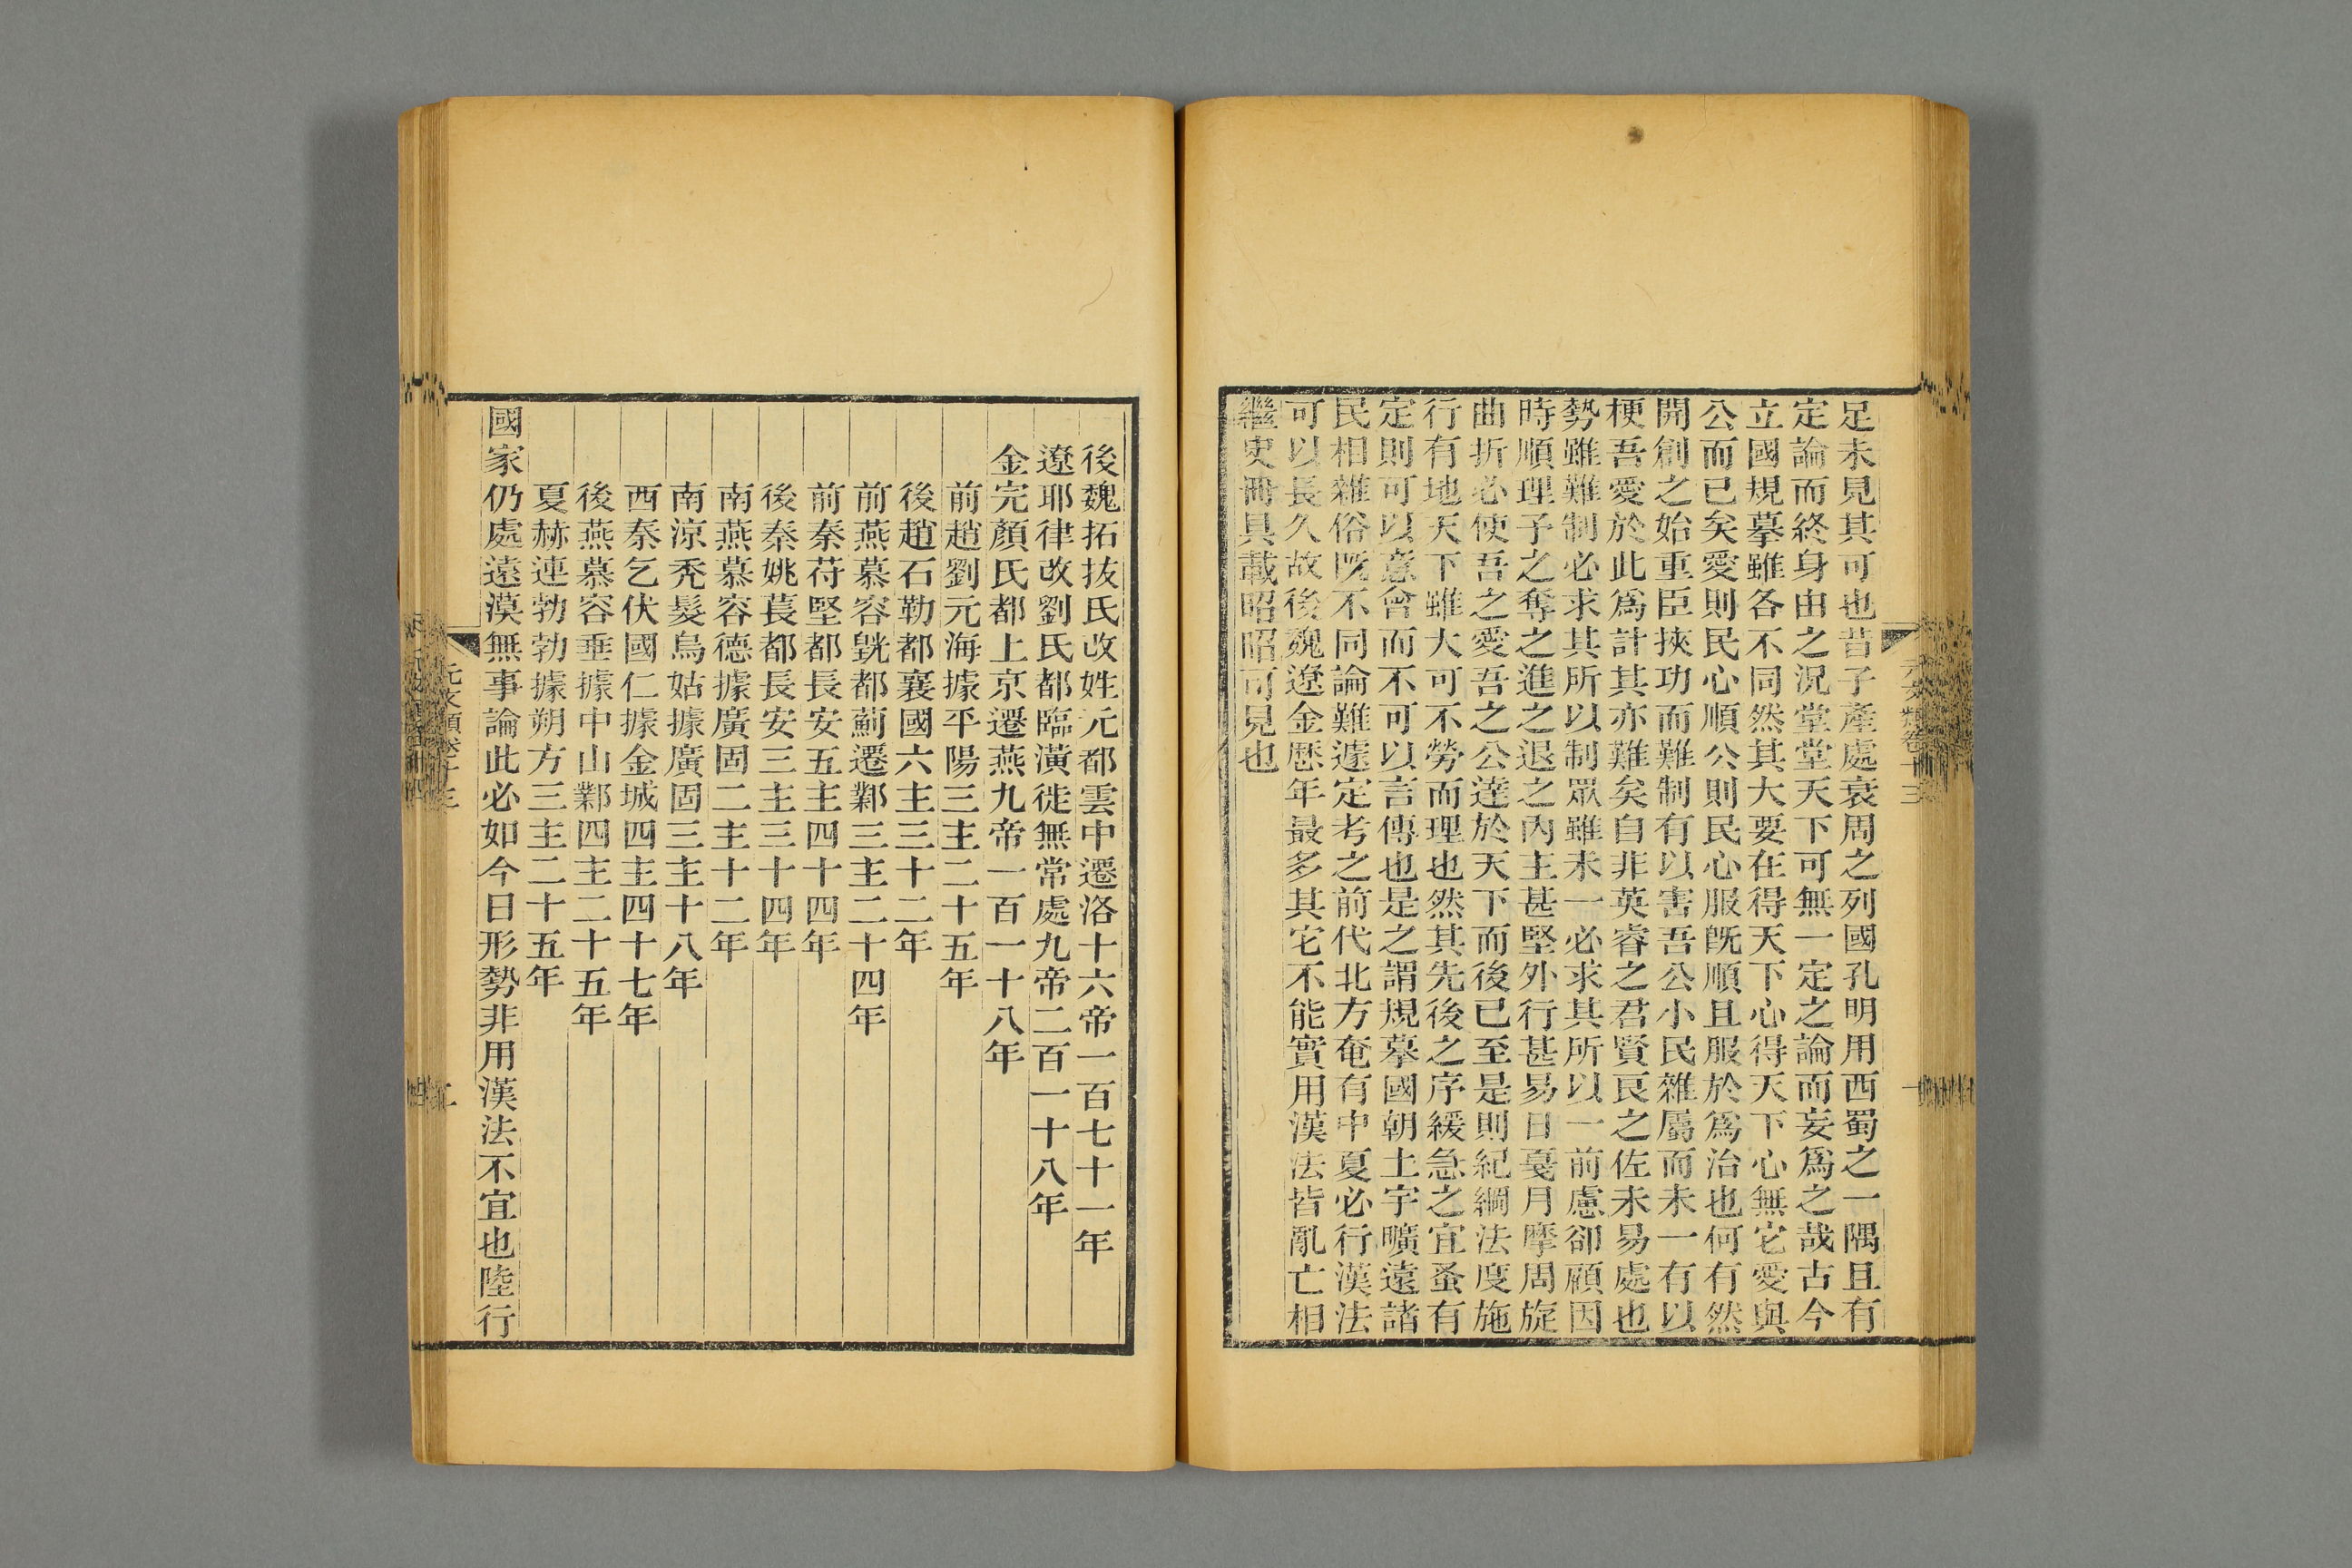 足未見其可也昔子產處衰周之列國孔明用西蜀之一隅且有
定論而終身由之況堂堂天下可無一定之論而妄爲之哉古今
立國規摹雖各不同然其大要在得天下心得天下心無它愛與
公而已矣愛則民心順公則民心服旣順且服於爲治也何有然
開創之始重臣挾功而難制有以害吾公小民雜屬而未一有以
梗吾愛於此爲計其亦難矣自非英睿之君賢良之佐未易處也
勢雖難制必求其所以制眾雖未一必求其所以一前慮卻顧因
時順理予之奪之進之退之內主甚堅外行甚易日戞月摩周旋
曲折必使吾之愛吾之公達於天下而後已至是則紀綱法度施
行有地天下雖大可不勞而理也然其先後之序緩急之宜蚤有
定則可以意會而不可以言傳也是之謂規摹國朝土宇曠遠諸
民相雜俗旣不同論難遽定考之前代北方奄有中夏必行漢法
可以長久故後魏遼金歷年最多其它不能實用漢法皆亂亡相
繼史冊具載昭昭可見也
元文類卷十三
後魏拓抜氏改姓元都雲中遷洛十六帝一百七十一年
遼耶律改劉氏都臨潢徙無常處九帝二百一十八年
金完顏氏都上京遷燕九帝一百一十八年
前趙劉元海據平陽三主二十五年
後趙石勒都襄國六主三十二年
前燕慕容皝都薊遷鄴三主二十四年
前秦苻堅都長安五主四十四年
後秦姚萇都長安三主三十四年
南燕慕容德據廣固二主十二年
南涼禿髮烏姑據廣固三主十八年
西秦乞伏國仁據金城四主四十七年
後燕慕容垂據中山鄴四主二十五年
夏赫連勃勃據朔方三主二十五年
國家仍處遠漠無事論此必如今日形勢非用漢法不宜也陸行
元文類卷十三